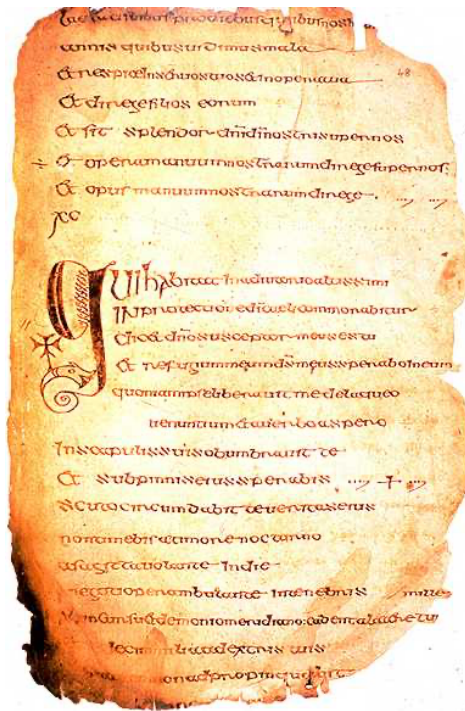 annis quibus uidimus mala
Et respice in seruos tuos et in opera tua 48
Et dirige filios eorum
Et sit splendor dni di nostri super nos
÷ Et opera manuum nostrarum dirige super nos:
Et opus manuum nostrarum dirige
XC
Qui habitat in adiutorio altissimi
IN protectione di caeli commorabitur
Dicet dno susceptor meus es tu
Et refugium meum ds meus sperabo in eum
quoniam ipse liberauit me de laqueo
uenantium et a uerbo aspero
In scapulis suis obumbrauit te
Et sub pinnis eius sperabis
scuto circumdabit te ueritas eius
non timebis a timore nocturno
a sagita uolante in die
negotio perambulante in tenebris mille
incursu et demonio meridiano: cadent a latere tuo
decim milia a dextris tuis
non adpropinquabit